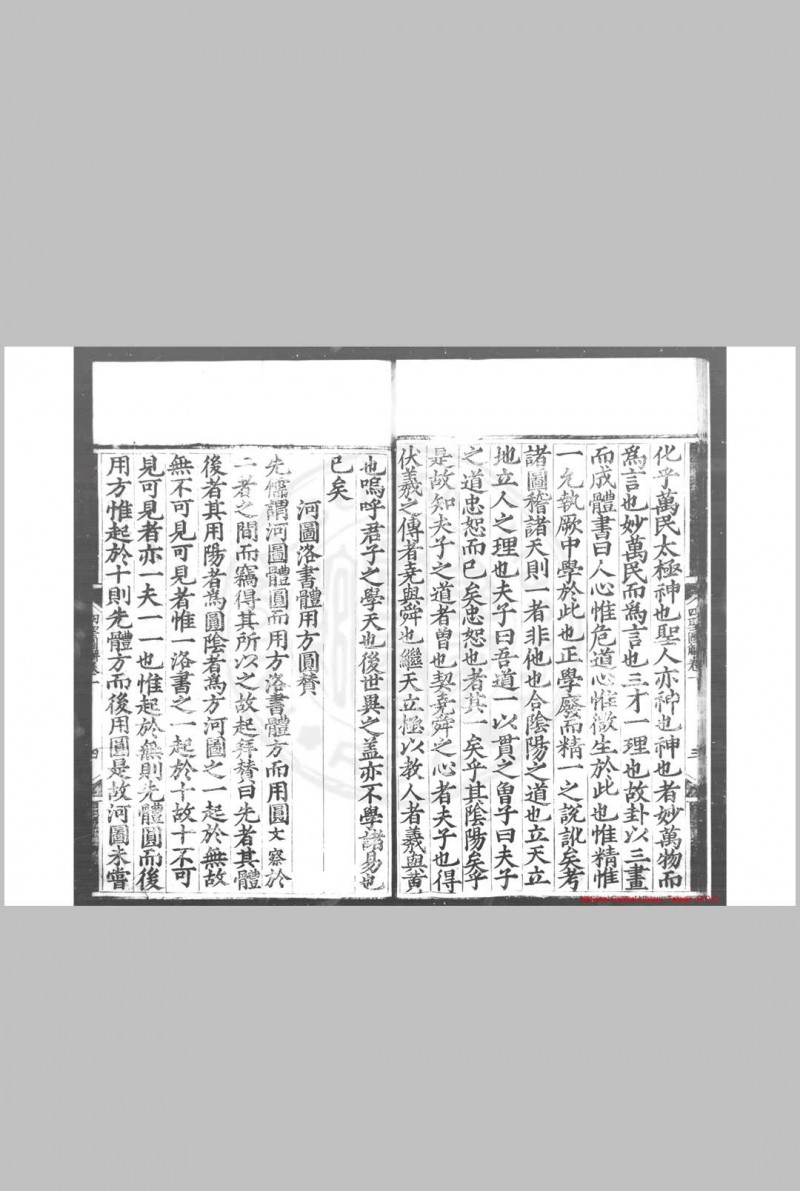 化乎萬民太極神也聖人亦神也神也者妙萬物而
爲言也妙萬民而爲言也三才一理也故卦以三畫
而成體書曰人心惟危道心惟微生於此也惟精惟
一允執厥中學於此也正學廢而精一之說訛矣考
諸圖稽諸天則一者非他也合陰陽之道也立天立
地立人之理也夫子曰吾道一以貫之曾子曰夫子
之道忠恕而已矣忠恕也者其一矣乎其陰陽矣乎
是故知夫子之道者曾也契堯舜之心者夫子也得
伏羲之傳者堯與舜也繼天立極以教人者羲與黄
也嗚呼君子之學天也後世異之盖亦不學諸易也
已矣
河圖洛書體用方圓賛
先儒謂河圖體圓而用方洛書體方而用圓文察於
二者之間而竊得其所以之故起拜賛曰先者其體
後者其用陽者爲圓陰者爲方河圖之一起於無故
無不可見可見者惟一洛書之一起於十故十不可
見可見者亦一夫一一也惟起於無則先體圓而後
用方惟起於十則先體方而後用圓是故河圖未嘗
四聖圖解卷一
三
四